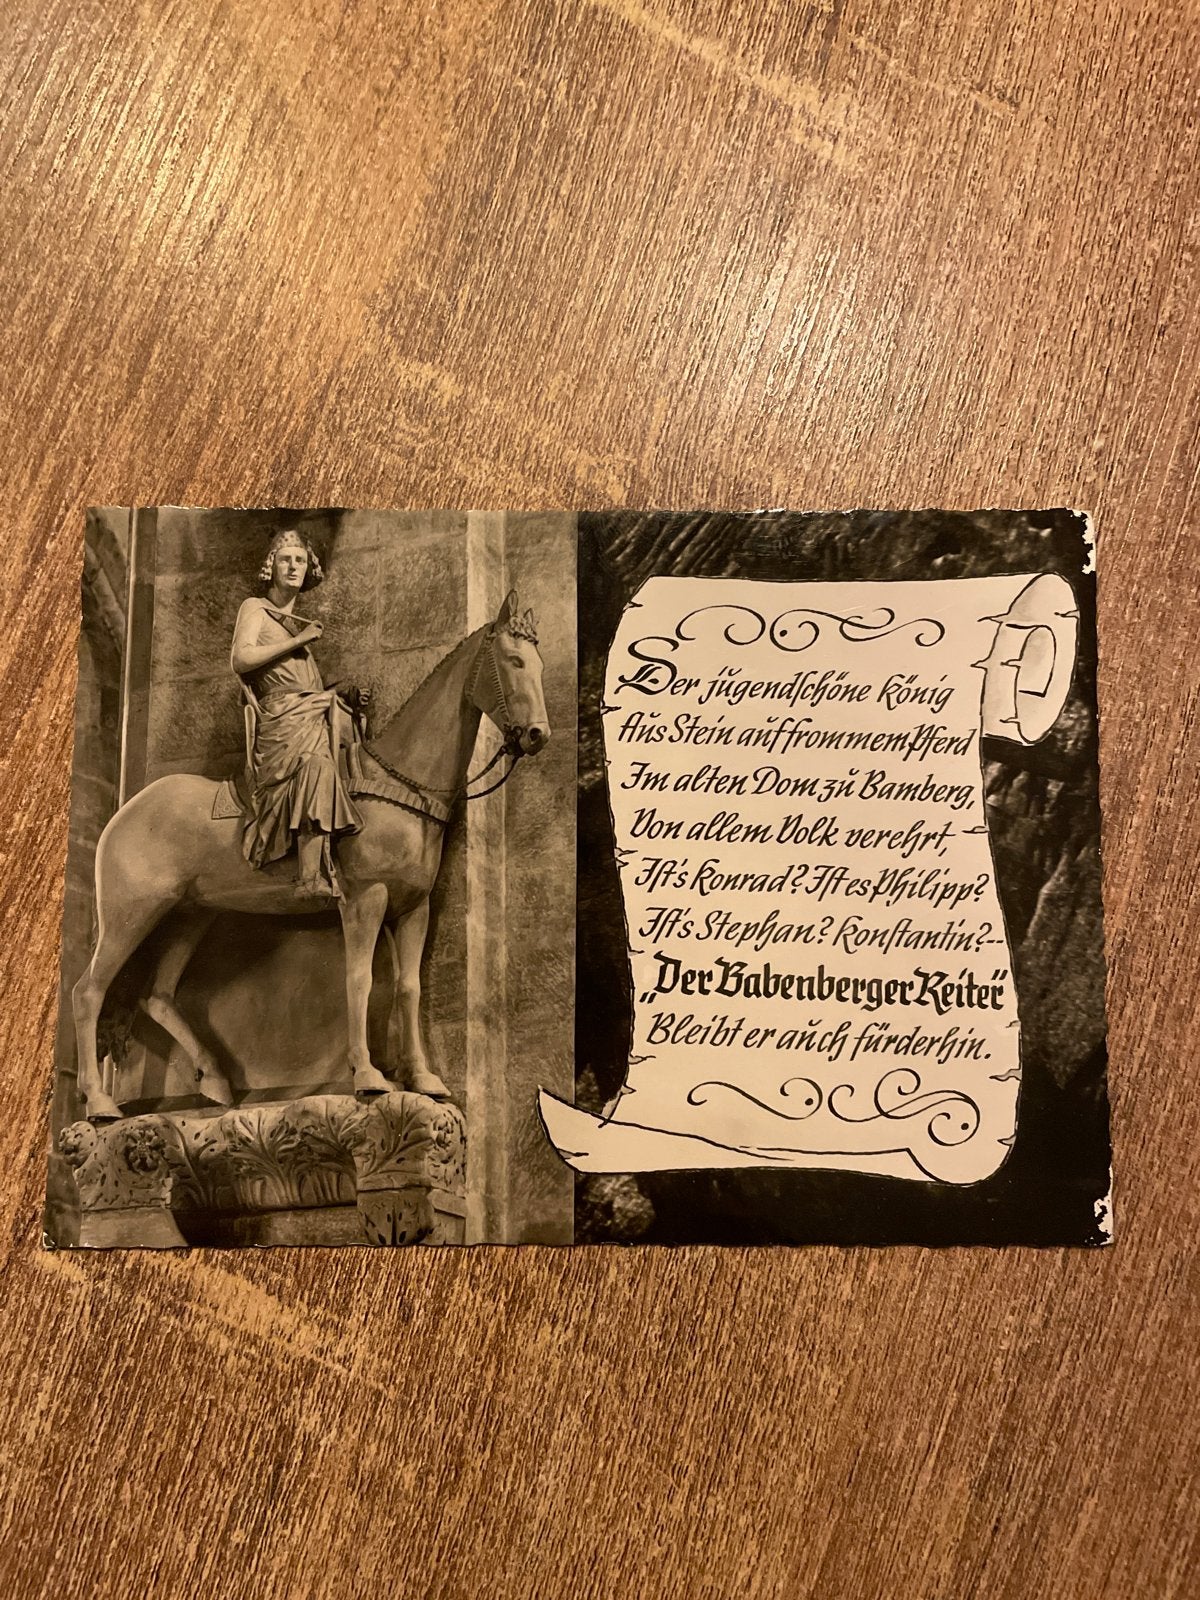 Der jugendschöne König
Aus Stein auf frommem Pferd
Im alten Dom zu Bamberg,
Von allem Volk verehrt,
Ist's Konrad? Ist es Philipp?
Ist's Stephan? Konstantin?--
„Der Babenberger Reiter“
Bleibt er auch fürderhin.